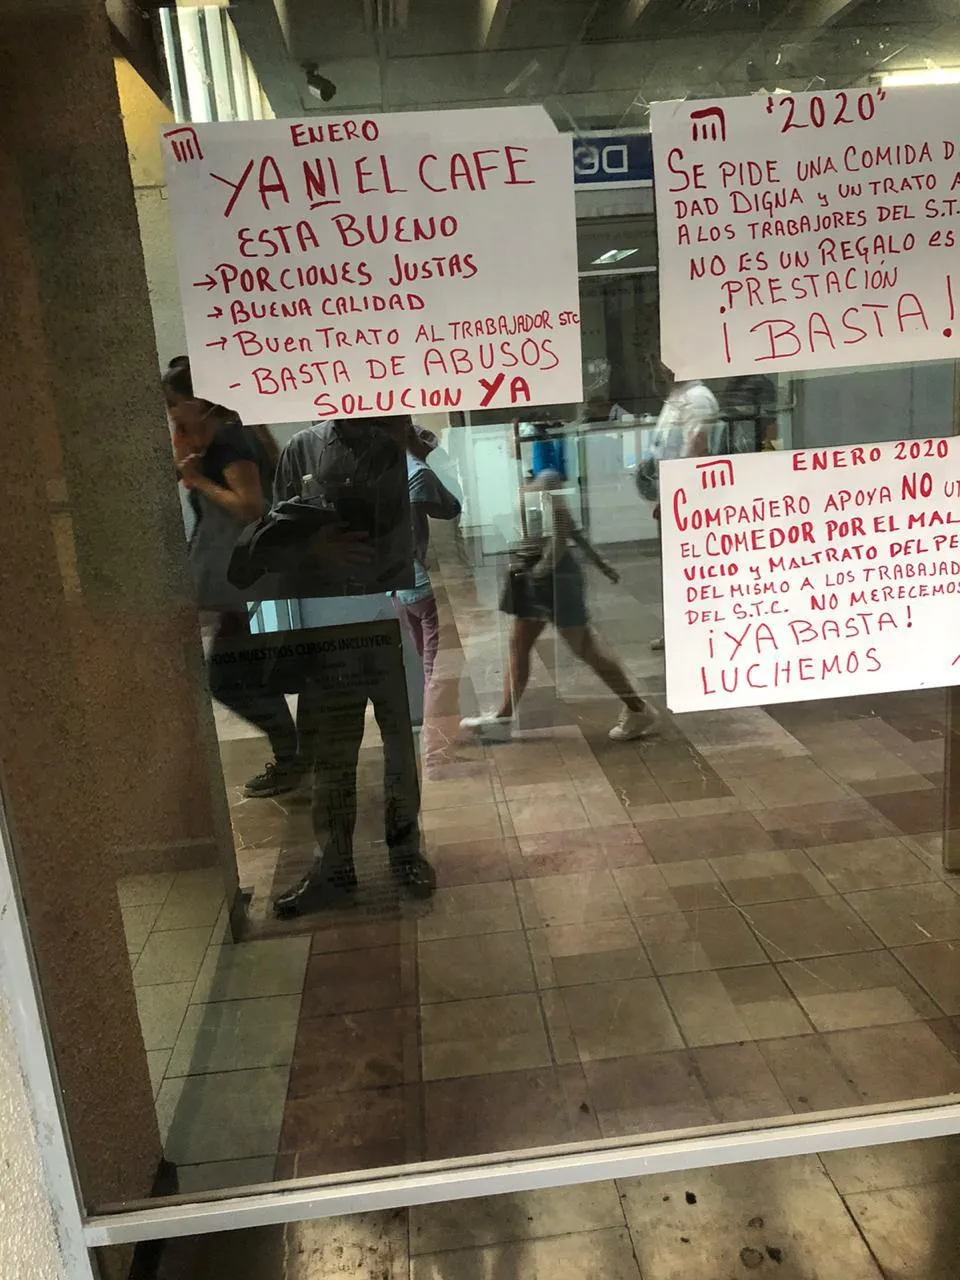 ENERO
YA NI EL CAFE
ESTA BUENO
→PORCIONES JUSTAS
→BUENA CALIDAD
→BUEN TRATO AL TRABAJADOR STC
- BASTA DE ABUSOS
SOLUCION YA
"2020"
SE PIDE UNA COMIDA D
DAD DIGNA y UN TRATO A
A LOS TRABAJORES DEL S.T.
NO ES UN REGALO es
PRESTACIÓN
¡BASTA!
ENERO 2020
COMPAÑERO APOYA NO UT
EL COMEDOR POR EL MAL
VICIO y MALTRATO DEL PE
DEL MISMO A LOS TRABAJAD
DEL S.T.C. NO MERECEMOS
¡YA BASTA!
LUCHEMOS
DE
NUESTROS CURSOS INCLUYEN: